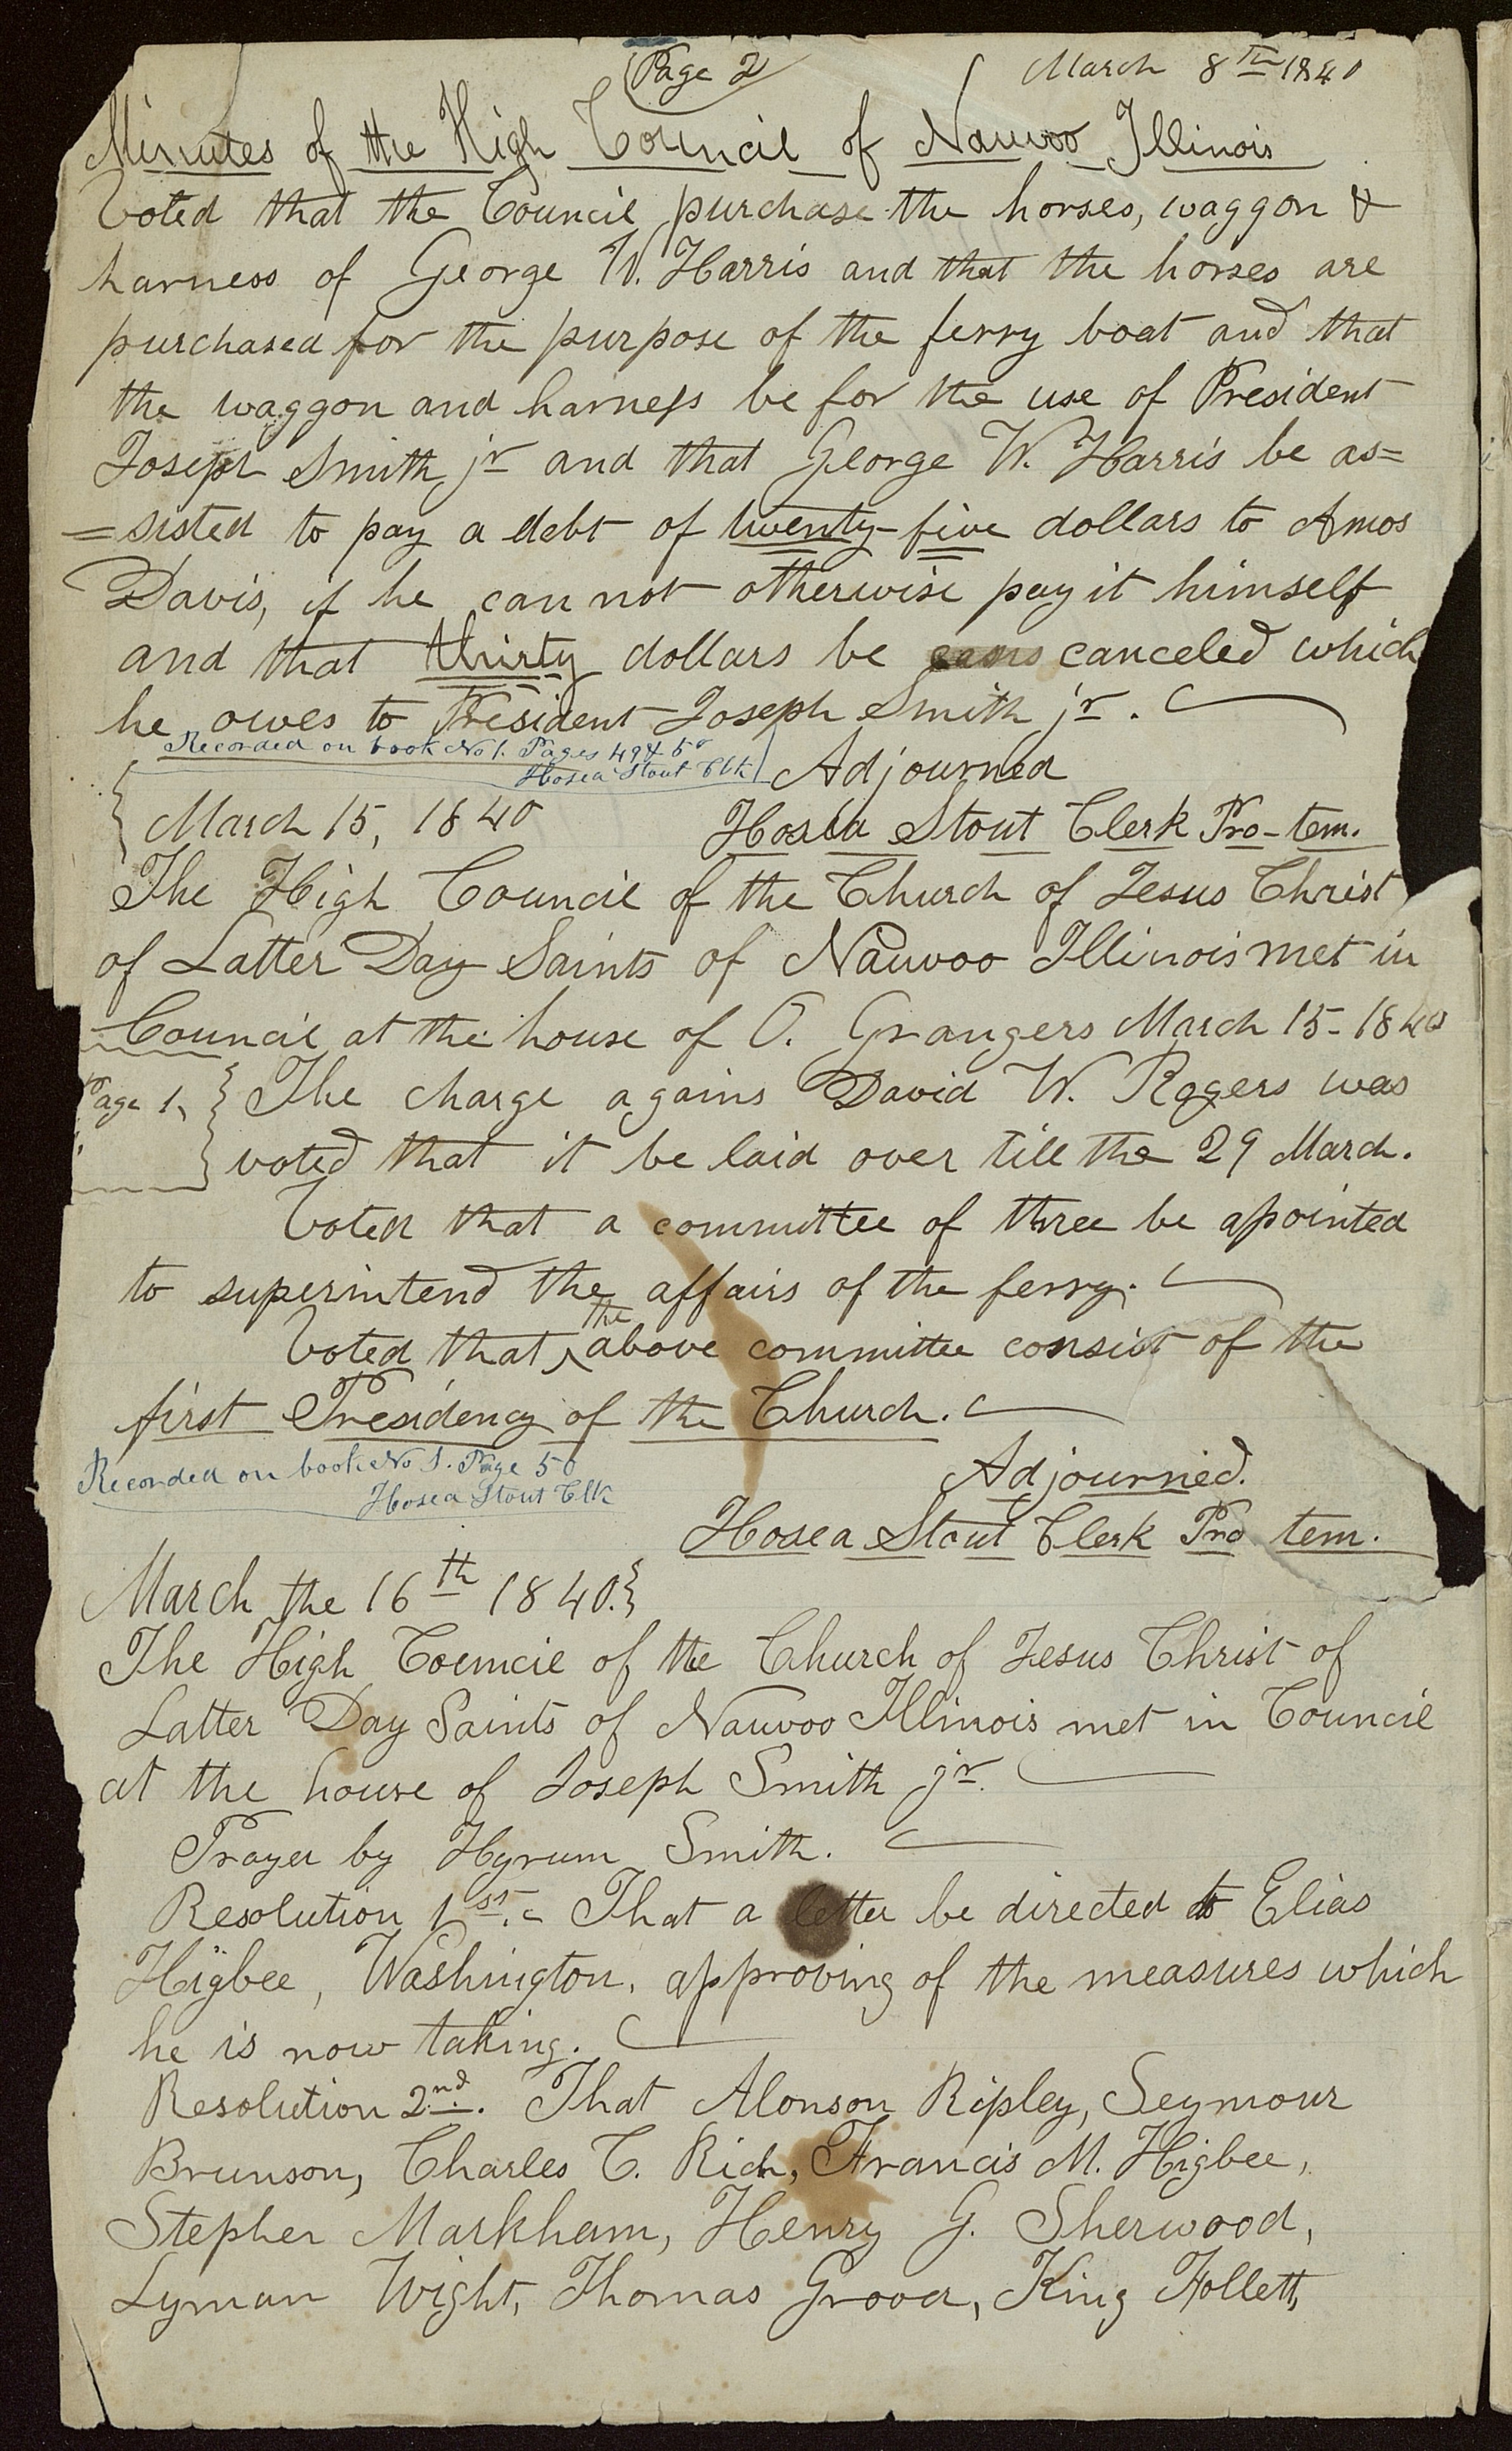 Page 2
March 8th 1840
Minutes of the High Council of Nauvoo Illinois
Voted that the Council purchase the horses, waggon &
harness of George W. Harris and that the horses are
purchased for the purpose of the ferry boat and that
the waggon and harness be for the use of President
Joseph Smith jr and that George W. Harris be as=
=sisted to pay a debt of twenty-five dollars to Amos
Davis, if he can not otherwise pay it himself
and that thirty dollars be canceled which
he owes to President Joseph Smith jr.
Recorded on book No 1. Pages 49 & 50
Hosea Stout Clk
Adjourned
March 15, 1840
Hosea Stout Clerk Pro-tem.
The High Council of the Church of Jesus Christ
of Latter Day Saints of Nauvoo Illinois met in
Council at the house of O. Grangers March 15- 1840
Page 1, The charge agains David W. Rogers was
voted that it be laid over till the 29 March.
Voted that a committee of three be apointed
to superintend the affairs of the ferry.
Voted that ^the above committee consist of the
first Presidency of the Church.
Recorded on book No 1. Page 50
Hosea Stout Clk
Adjourned.
Hosea Stout Clerk Pro tem.
March the 16th 1840.
The High Council of the Church of Jesus Christ of
Latter Day Saints of Nauvoo Illinois met in Council
at the house of Joseph Smith jr.
Prayer by Hyrum Smith.
Resolution 1st.- That a letter be directed to Elias
Higbee, Washington, approving of the measures which
he is now taking.
Resolution 2nd. That Alonson Ripley, Seymour
Brunson, Charles C. Rich, Francis M. Higbee,
Stephen Markham, Henry G. Sherwood,
Lyman Wight, Thomas Grover, King Follett,